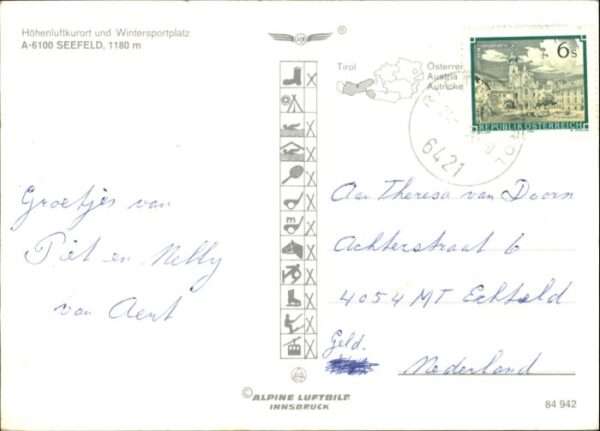 Höhenluftkurort und Wintersportplatz
A-6100 SEEFELD, 1180 m
Tirol
Österrei
Austria
Autriche
6 s
REPUBLIK ÖSTERREICH
6421
Groetjes van
Piet en Nelly
van Aert
Aan Theresa van Doorn
Achterstraat 6
4054 MT Echteld
Geld.
Nederland
© ALPINE LUFTBILD
INNSBRUCK
84 942